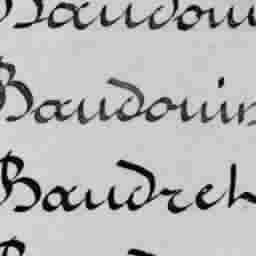 Baudoui
Baudouin
Baudreh